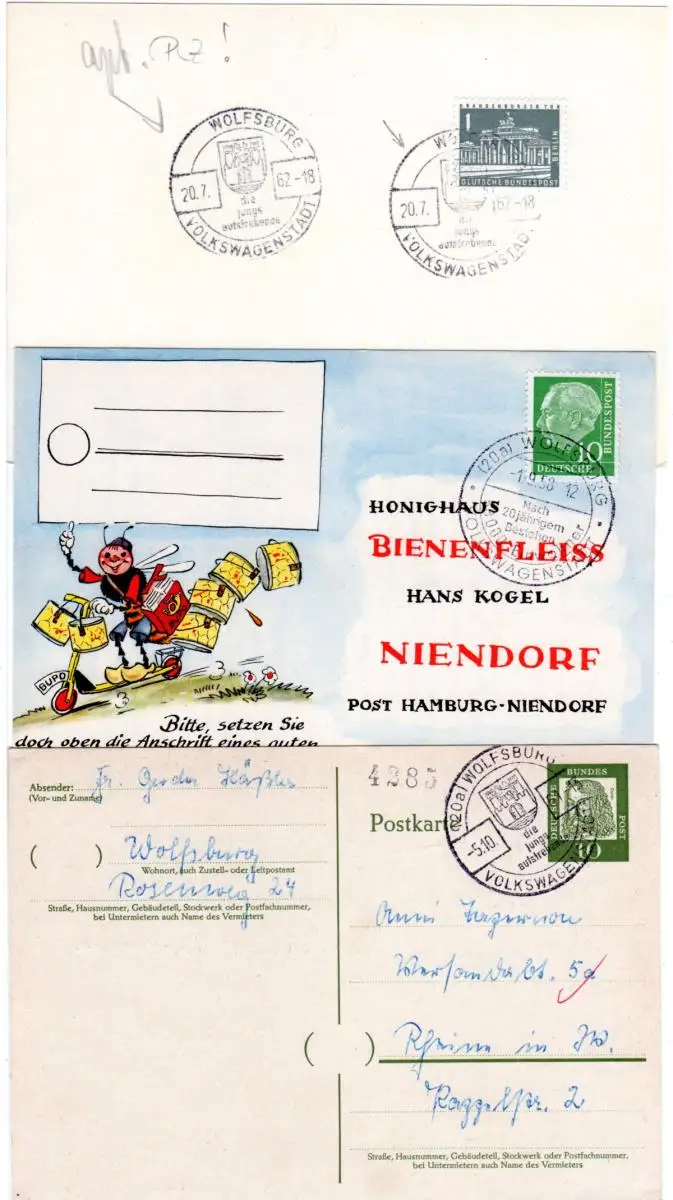 apt. RZ!
WOLFSBURG
20.7. 62-18
die
junge
aufstrebende
VOLKSWAGENSTADT
BRANDENBURGER TOR
1
BERLIN
DEUTSCHE BUNDESPOST
WO
20.7. 62-18
die
junge
aufstrebende
VOLKSWAGENSTADT
BUNDESPOST
10
DEUTSCHE
(20a) WOLFSBURG
-1.9.58 12
Nach
20jährigem
Bestehen
VOLKSWAGENSTADT
HONIGHAUS
BIENENFLEISS
HANS KOGEL
NIENDORF
POST HAMBURG-NIENDORF
BUPO
Bitte, setzen Sie
doch oben die Anschrift eines guten
Absender:
(Vor- und Zuname)
Fr. Gerda
4385
Postkarte
DEUTSCHE BUNDES POST
10
(20a) WOLFSBURG
-5.10.
die
junge
aufstrebende
VOLKSWAGEN
Wolfsburg
Wohnort, auch Zustell- oder Leitpostamt
Rosenweg 24
Straße, Hausnummer, Gebäudeteil, Stockwerk oder Postfachnummer,
bei Untermietern auch Name des Vermieters
Anni
Versandabt. 5a
Rheine in W.
2
Straße, Hausnummer, Gebäudeteil, Stockwerk oder Postfachnummer,
bei Untermietern auch Name des Vermieters